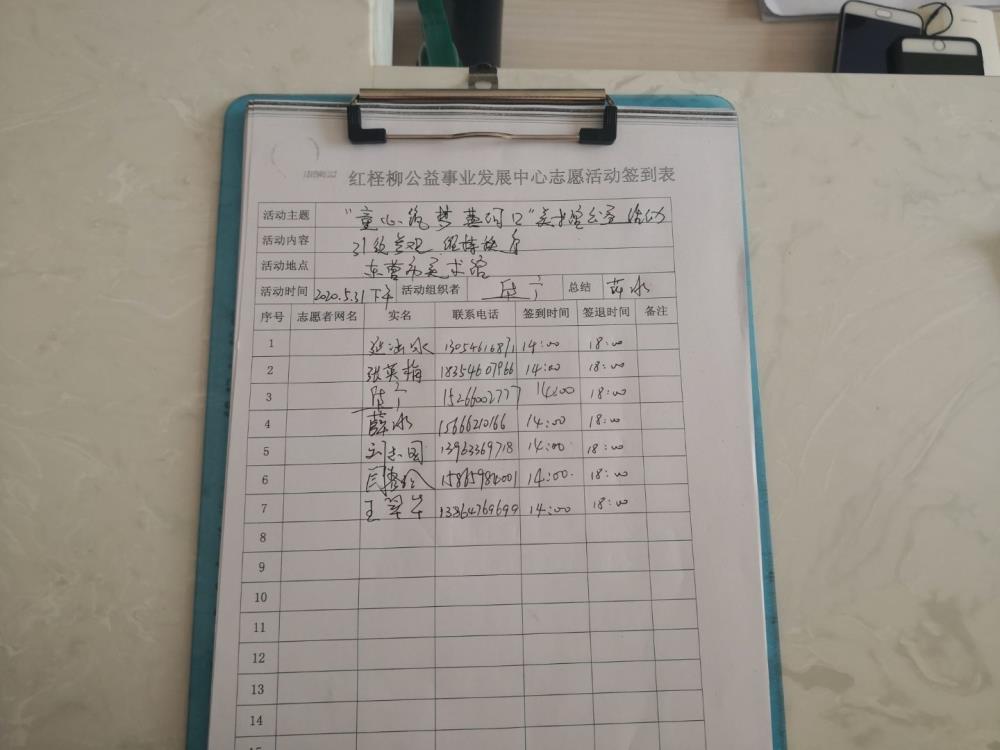 红柽柳公益事业发展中心志愿活动签到表
活动主题 "童心筑梦 黄河口"美术馆公益活动
活动内容 引绘参观 维持秩序
活动地点 东营市美术馆
活动时间 2020.5.31下午 活动组织者 总结 薛冰
序号 志愿者网名 实名 联系电话 签到时间 签退时间 备注
1 1305461687 14:00 18:00
2 张英梅 18354607966 14:00 18:00
3 15266002777 14:00 18:00
4 薛冰 15666210166 14:00 18:00
5 刘志国 13963369718 14:00 18:00
6 14:00 18:00
7 王翠华 13864769699 14:00 18:00
8
9
10
11
12
13
14
15